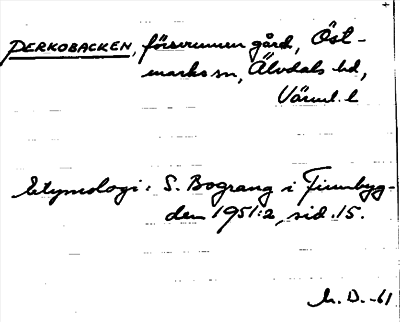 PERKOBACKEN, försvunnen gård, Öst-
marks sn, Älvdals hd,
Värml. l
Etymologi: S. Bograng i Finnbyg-
den 1951:2, sid. 15.
M. D. -61